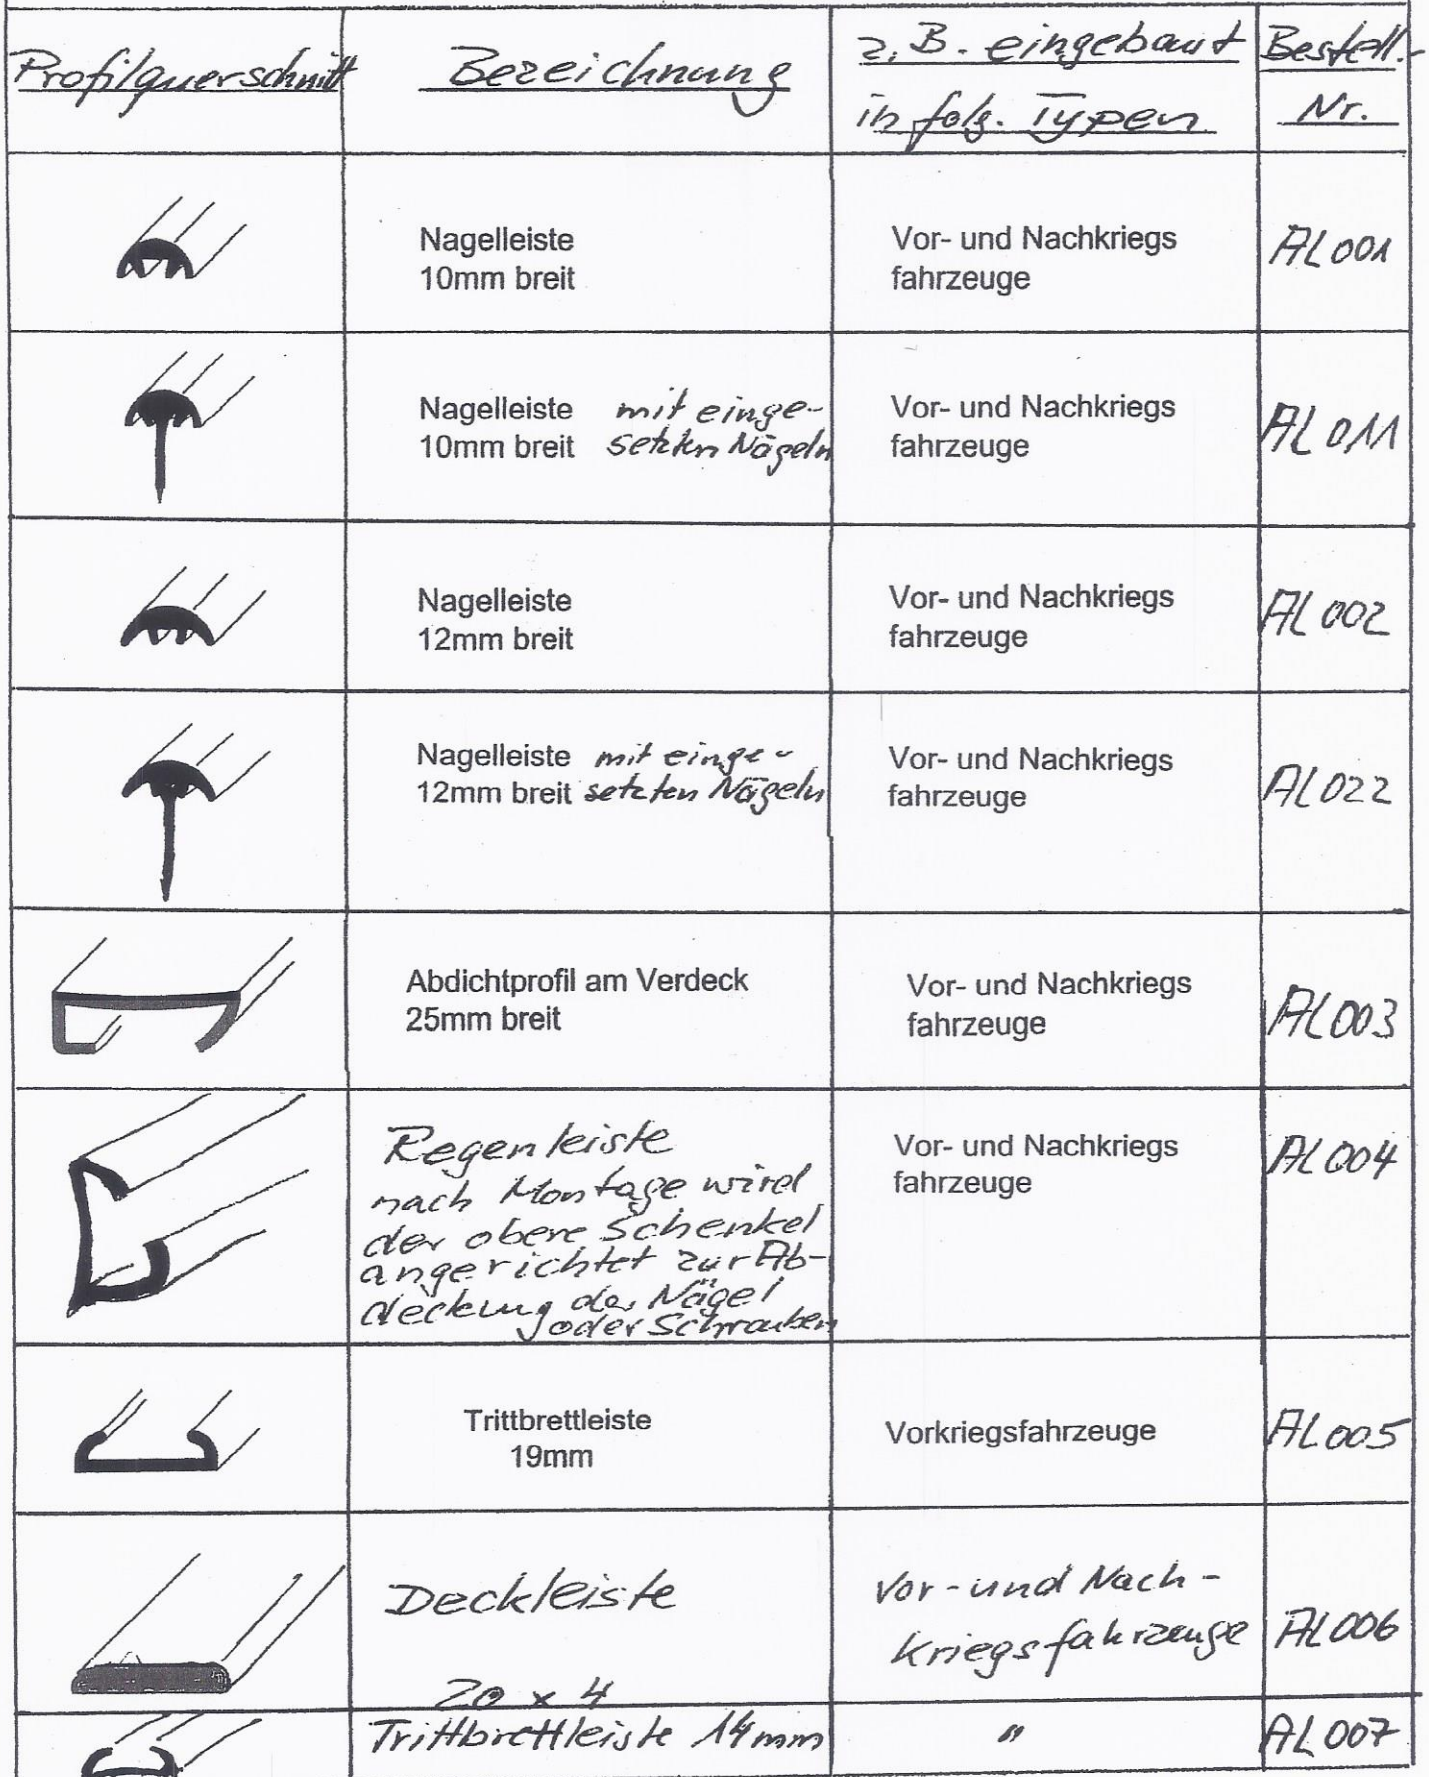 Profilquerschnitt
Bezeichnung
z.B. eingebaut
in folg. Typen
Bestell.-
Nr.
Nagelleiste
10mm breit
Vor- und Nachkriegs
fahrzeuge
AL001
Nagelleiste mit einge-
10mm breit setzten Nägeln
Vor- und Nachkriegs
fahrzeuge
AL011
Nagelleiste
12mm breit
Vor- und Nachkriegs
fahrzeuge
AL002
Nagelleiste mit einge-
12mm breit setzten Nägeln
Vor- und Nachkriegs
fahrzeuge
AL022
Abdichtprofil am Verdeck
25mm breit
Vor- und Nachkriegs
fahrzeuge
AL003
Regenleiste
nach Montage wird
der obere Schenkel
angerichtet zur Ab-
deckung der Nägel
oder Schrauben
Vor- und Nachkriegs
fahrzeuge
AL004
Trittbrettleiste
19mm
Vorkriegsfahrzeuge
AL005
Deckleiste
20 x 4
Vor- und Nach-
kriegsfahrzeuge
AL006
Trittbrettleiste 14mm
"
AL007